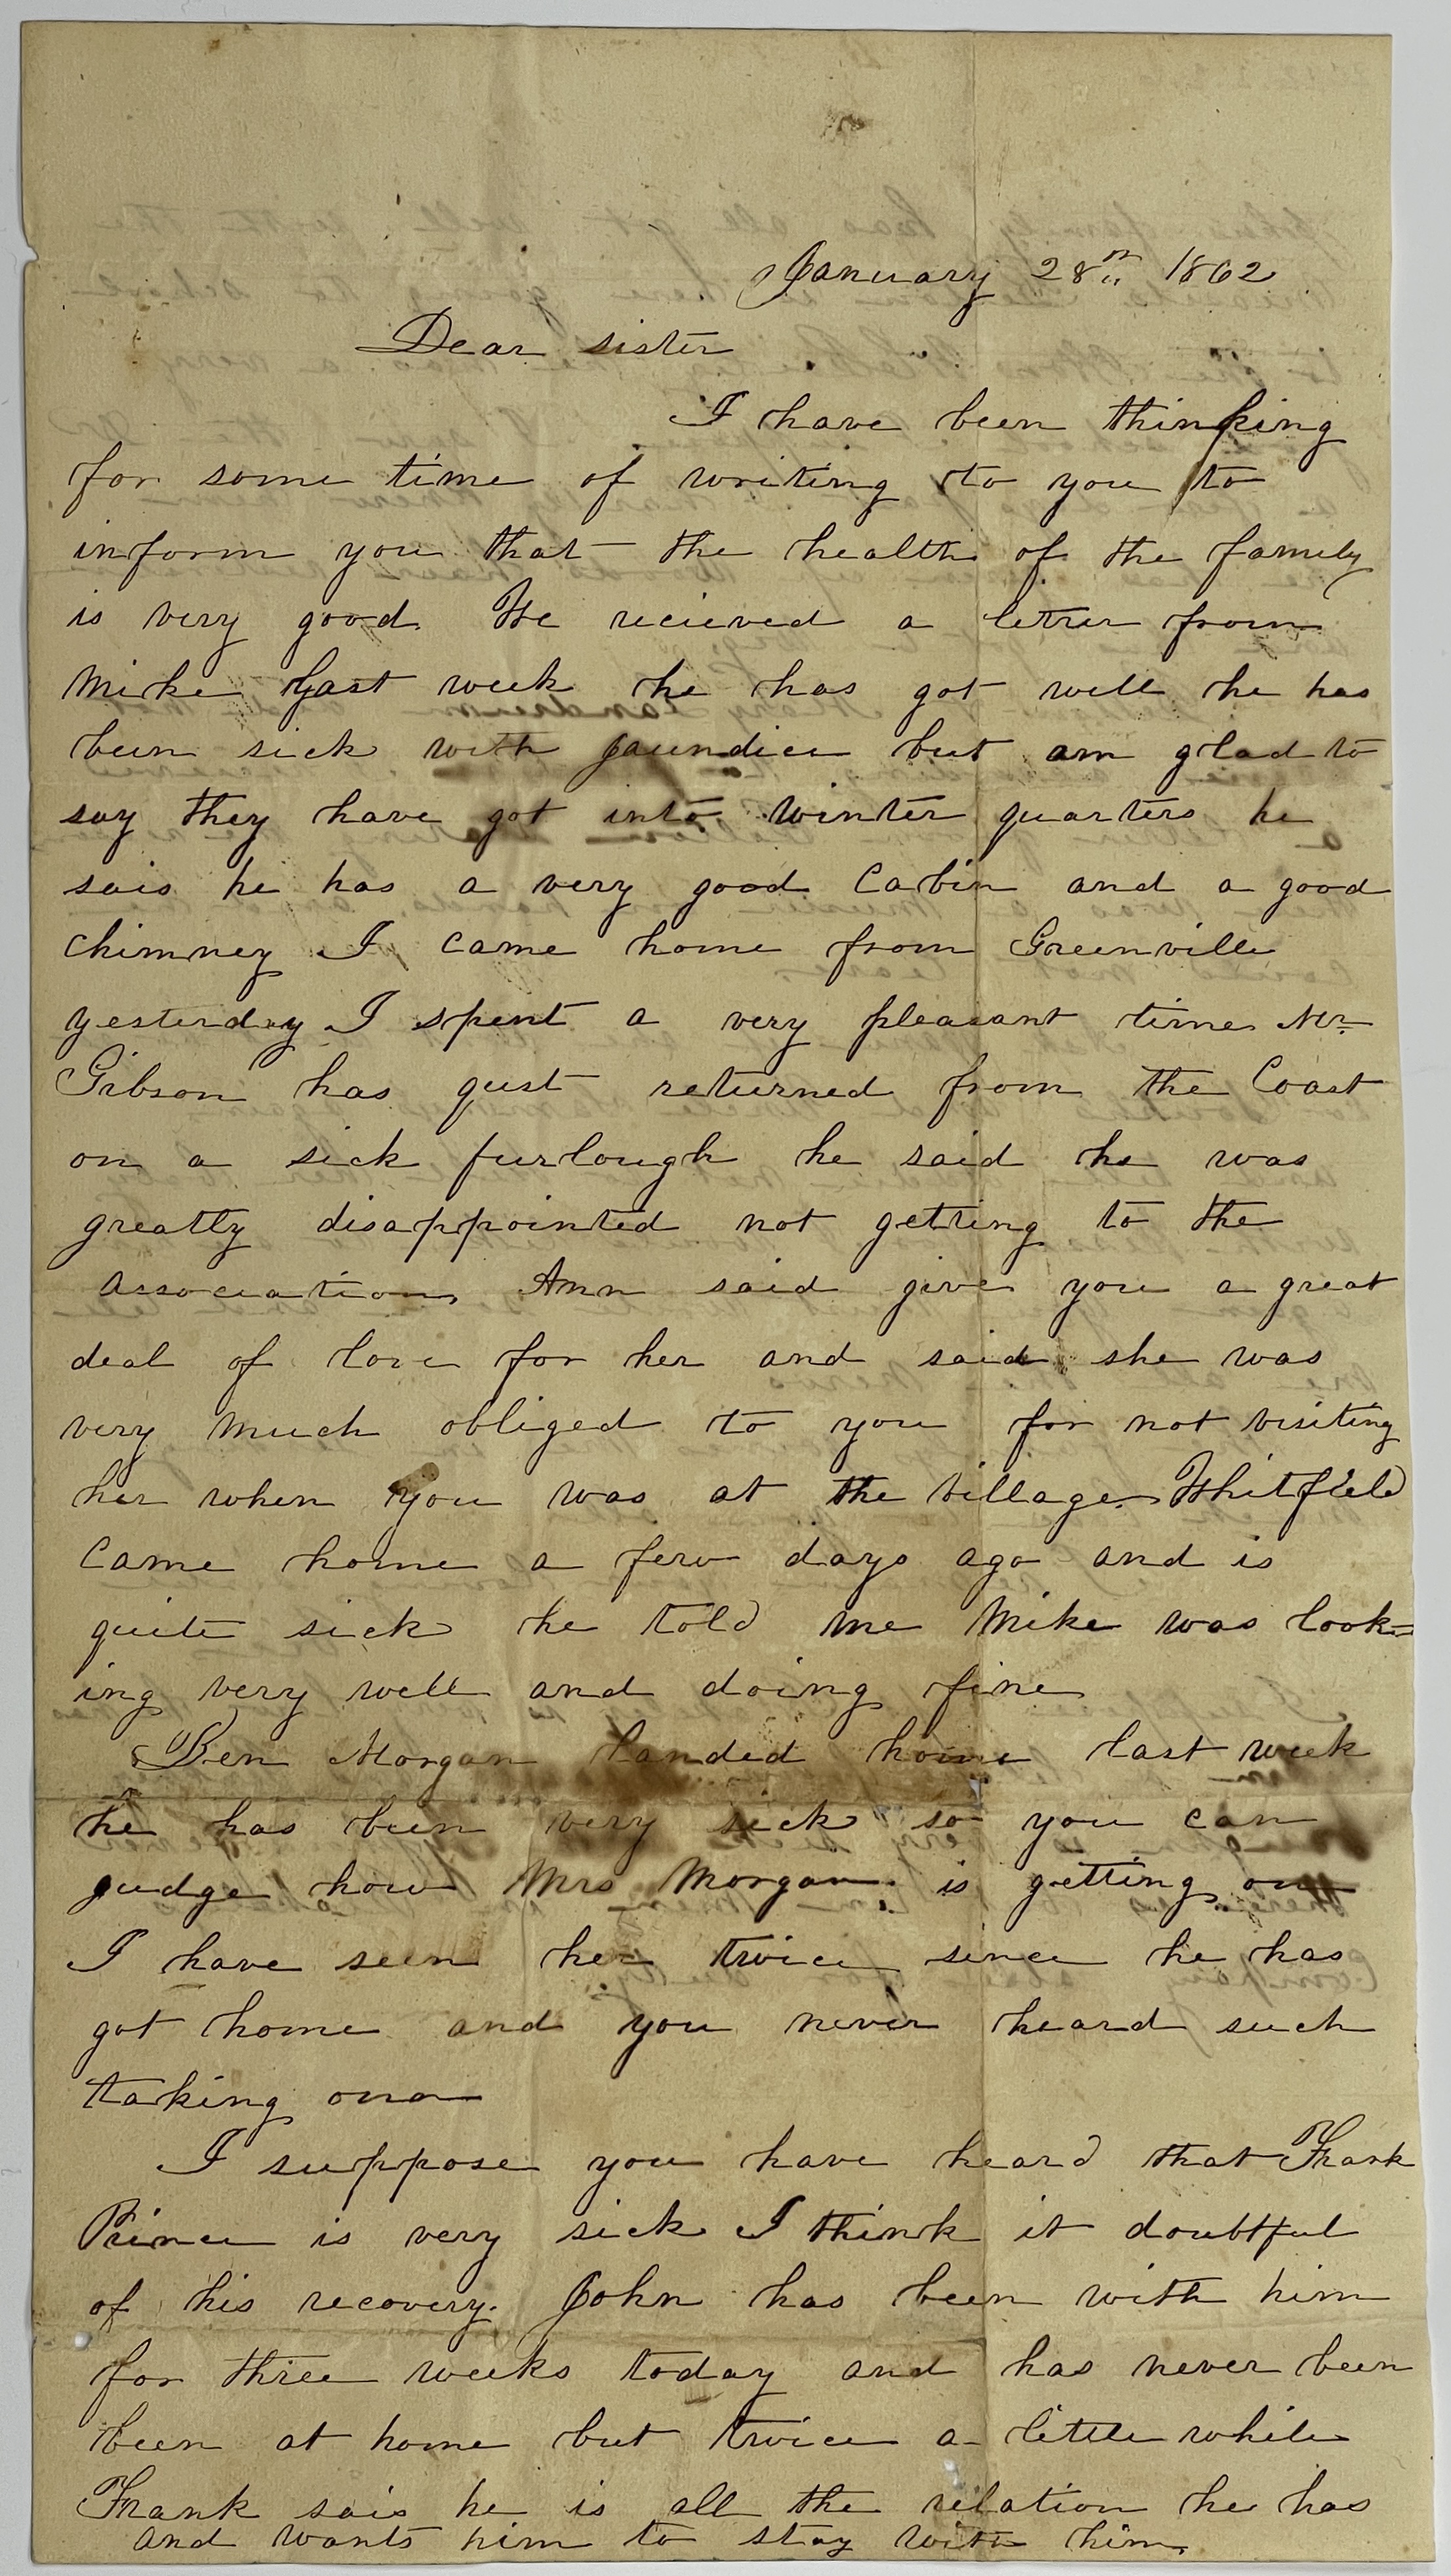 January 28th 1862
Dear sister
I have been thinking
for some time of writing to you to
inform you that the health of the family
is very good. We recieved a letter from
Mike last week he has got well he has
been sick with jaundice but am glad to
say they have got into winter quarters he
sais he has a very good Cabin and a good
chimney I came home from Greenville
yesterday I spent a very pleasant time Mr.
Gibson has just returned from the Coast
on a sick furlough he said he was
greatly disappointed not getting to the
association Ann said give you a great
deal of love for her and said she was
very much obliged to you for not visiting
her when you was at the village. Whitfield
came home a few days ago and is
quite sick he told me Mike was look=
ing very well and doing fine
Ben Morgan landed home last week
he has been very sick so you can
judge how Mrs Morgan is getting on
I have seen her twice since he has
got home and you never heard such
taking on
I suppose you have heard that Frank
Prince is very sick I think it doubtful
of his recovery. John has been with him
for three weeks today and has never been
been at home but twice a little while
Frank sais he is all the relation he has
and wants him to stay with him.